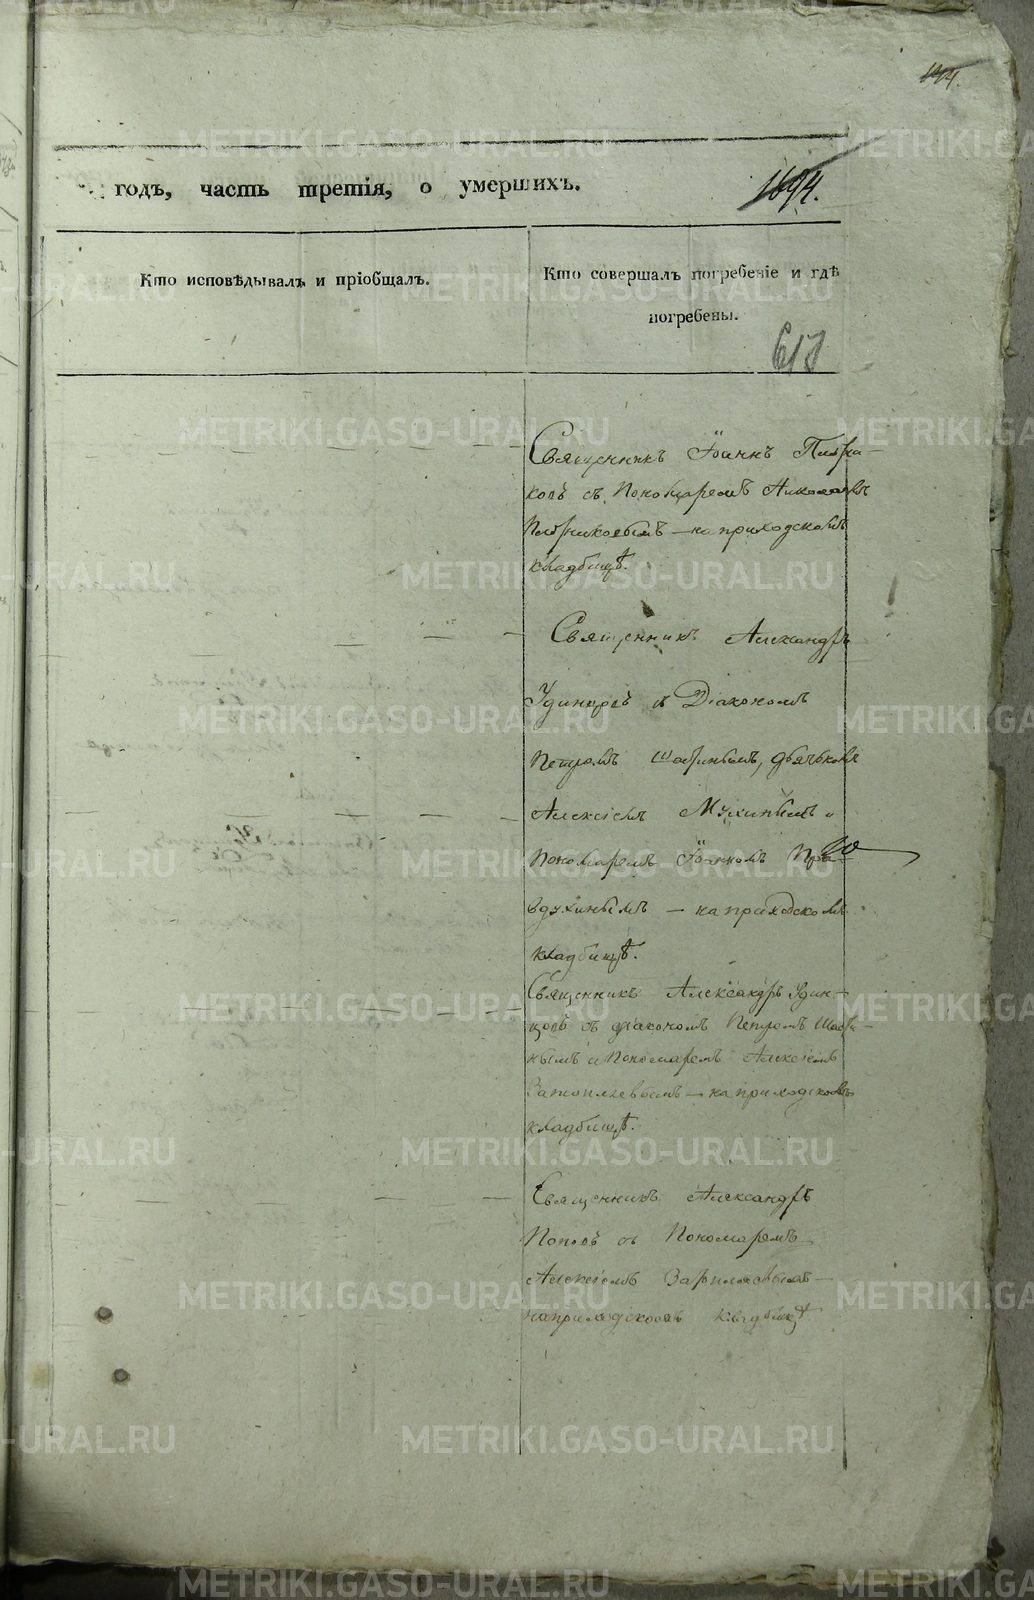 144.
годъ, часть третія, о умершихъ.
1694.
Кто исповѣдывалъ и пріобщалъ.
Кто совершалъ погребеніе и гдѣ
погребены.
617
Священникъ Іоаннъ
ковъ съ Пономаремъ Николаемъ
на приходскомъ
кладбищѣ.
Священникъ Александръ
Удинцовъ съ Діакономъ
Петромъ Шаб­инымъ, дьячкомъ
Алексіемъ Мухинымъ и
Пономаремъ Іоанномъ Пра-
вдухинымъ — на приходскомъ
кладбищѣ.
Священникъ Александръ Удин-
цовъ съ діакономъ Петромъ Шаби-
нымъ и Пономаремъ Алексіемъ
— на приходскомъ
кладбищѣ.
Священникъ Александръ
Поповъ съ Пономаремъ
Алексіемъ
на приходскомъ кладбищѣ
METRIKI.GASO-URAL.RU